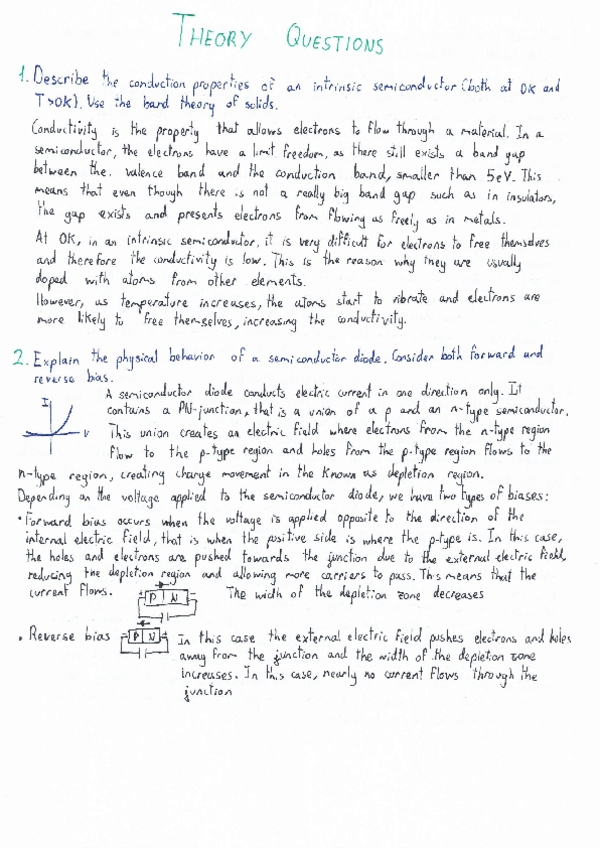 THEORY QUESTIONS
1. Describe the conduction properties of an intrinsic semiconductor (both at 0K and
T>0K). Use the band theory of solids.
Conductivity is the property that allows electrons to flow through a material. In a
semiconductor, the electrons have a limit freedom, as there still exists a band gap
between the valence band and the conduction band, smaller than 5eV. This
means that even though there is not a really big band gap such as in insulators,
the gap exists and presents electrons from flowing as freely as in metals.
At 0K, in an intrinsic semiconductor, it is very difficult for electrons to free themselves
and therefore the conductivity is low. This is the reason why they are usually
doped with atoms from other elements.
However, as temperature increases, the atoms start to vibrate and electrons are
more likely to free themselves, increasing the conductivity.
2. Explain the physical behavior of a semiconductor diode. Consider both forward and
reverse bias.
I
V
A semiconductor diode conducts electric current in one direction only. It
contains a PN-junction, that is a union of a p and an n-type semiconductor.
This union creates an electric field where electrons from the n-type region
flow to the p-type region and holes from the p-type region flows to the
n-type region, creating charge movement in the known as depletion region.
Depending on the voltage applied to the semiconductor diode, we have two types of biases:
• Forward bias occurs when the voltage is applied opposite to the direction of the
internal electric field, that is when the positive side is where the p-type is. In this case,
the holes and electrons are pushed towards the junction due to the external electric field,
reducing the depletion region and allowing more carriers to pass. This means that the
current flows.
P N
The width of the depletion zone decreases
• Reverse bias
P N
In this case the external electric field pushes electrons and holes
away from the junction and the width of the depletion zone
increases. In this case, nearly no current flows through the
junction